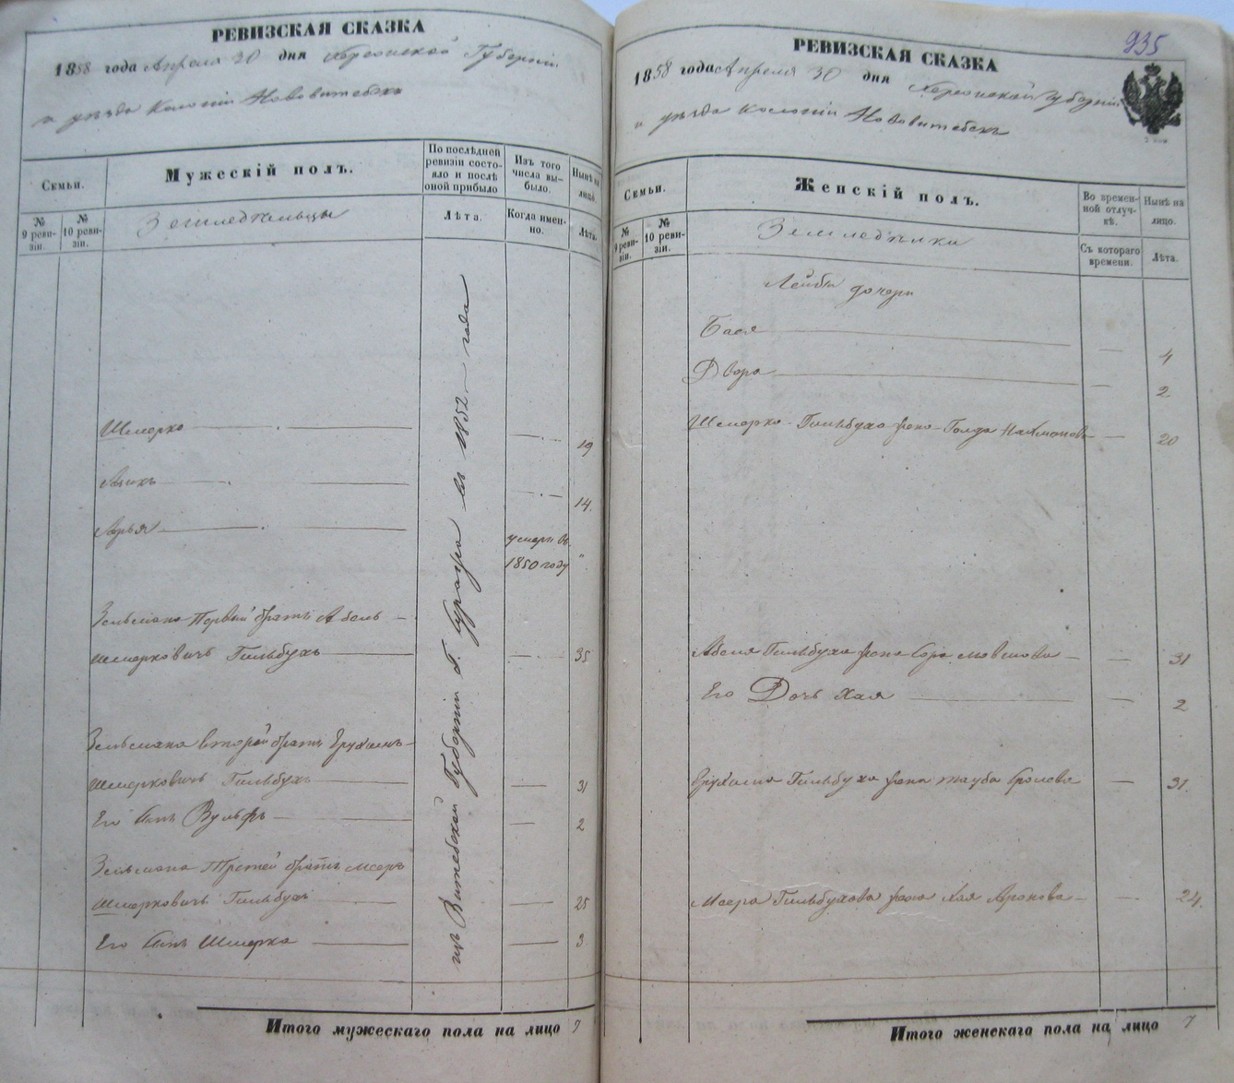 РЕВИЗСКАЯ СКАЗКА
1858 года Апреля 30 дня Херсонской Губерніи
и уѣзда Колоніи Нововитебска
Семьи.
Мужескій полъ.
По послѣдней ревизіи состояло и послѣ оной прибыло
Изъ того числа выбыло.
Нынѣ на лицо.
№ 9 ревизіи.
№ 10 ревизіи.
Земледѣльцы
Лѣта.
Когда именно.
Лѣта.
изъ Витебской Губерніи Г. Суража въ 1852 года
Шмерко 19
14.
Лейзя умеръ въ
1850 году "
Зельмана Первый братъ Абель
Шмерковичъ Гильбухъ 35
Зельмана второй братъ Ерухимъ
Шмерковичъ Гильбухъ 31
Его сынъ Вульфъ 2
Зельмана Третей братъ Мееръ
Шмерковичъ Гильбухъ 25
Его сынъ Шмерка 3
Итого мужескаго пола на лицо 7
935
РЕВИЗСКАЯ СКАЗКА
1858 года Апреля 30 дня Херсонской Губерніи
и уѣзда Колоніи Нововитебскъ
Семьи.
Женскій полъ.
Во временной отлучкѣ.
Нынѣ на лицо.
№ 9 ревизіи.
№ 10 ревизіи.
Земледѣлки
Съ котораго времени.
Лѣта.
Лейбы дочери
Бася 4
Двора 2
Шмерко Гильбуха жена Голда 20
Абеля Гильбуха жена Сора Мовшова 31
Его Дочь Хая 2
Ерухима Гильбуха жена Тауба Сролева 31.
Меера Гильбухова жена Хая Аронова 24.
Итого женскаго пола на лицо 7